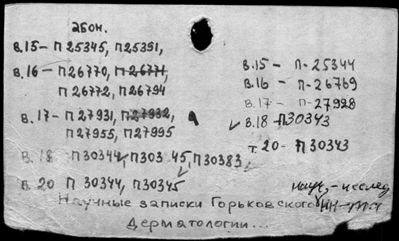 абон.
В.15 – П25345, П25351,
В.16 – П26770, П26771,
П26772, П26794
В.17 – П27931, П27932,
П27955, П27995
В.18 П30344, П30345, П30383,
В.20 П30344, П30345
В.15 – П-25344
В.16 – П-26769
В.17 – П-27928
В.18 П30343
т.20 – П30343
научн-исслед
Научные записки Горьковского ин-та
Дерматологии...